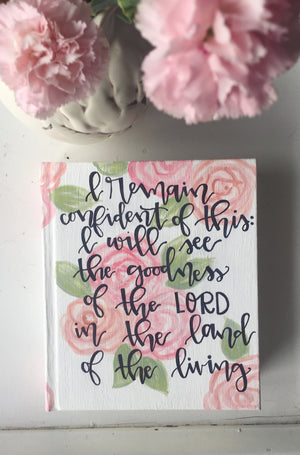 I remain
confident of this:
I will see
the goodness
of the LORD
in the land
of the living